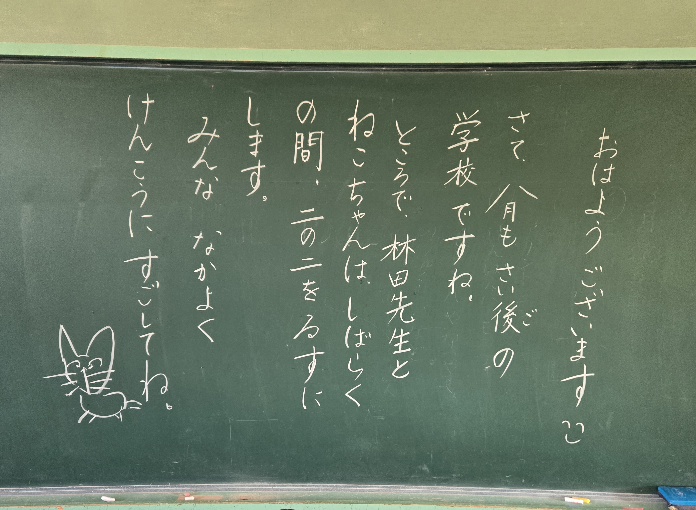 おはようございます
さて、八月もさい後ごの
学校ですね。
ところで、林田先生と
ねこちゃんは、しばらく
の間、二の二をるすに
します。
みんな なかよく
けんこうに すごしてね。